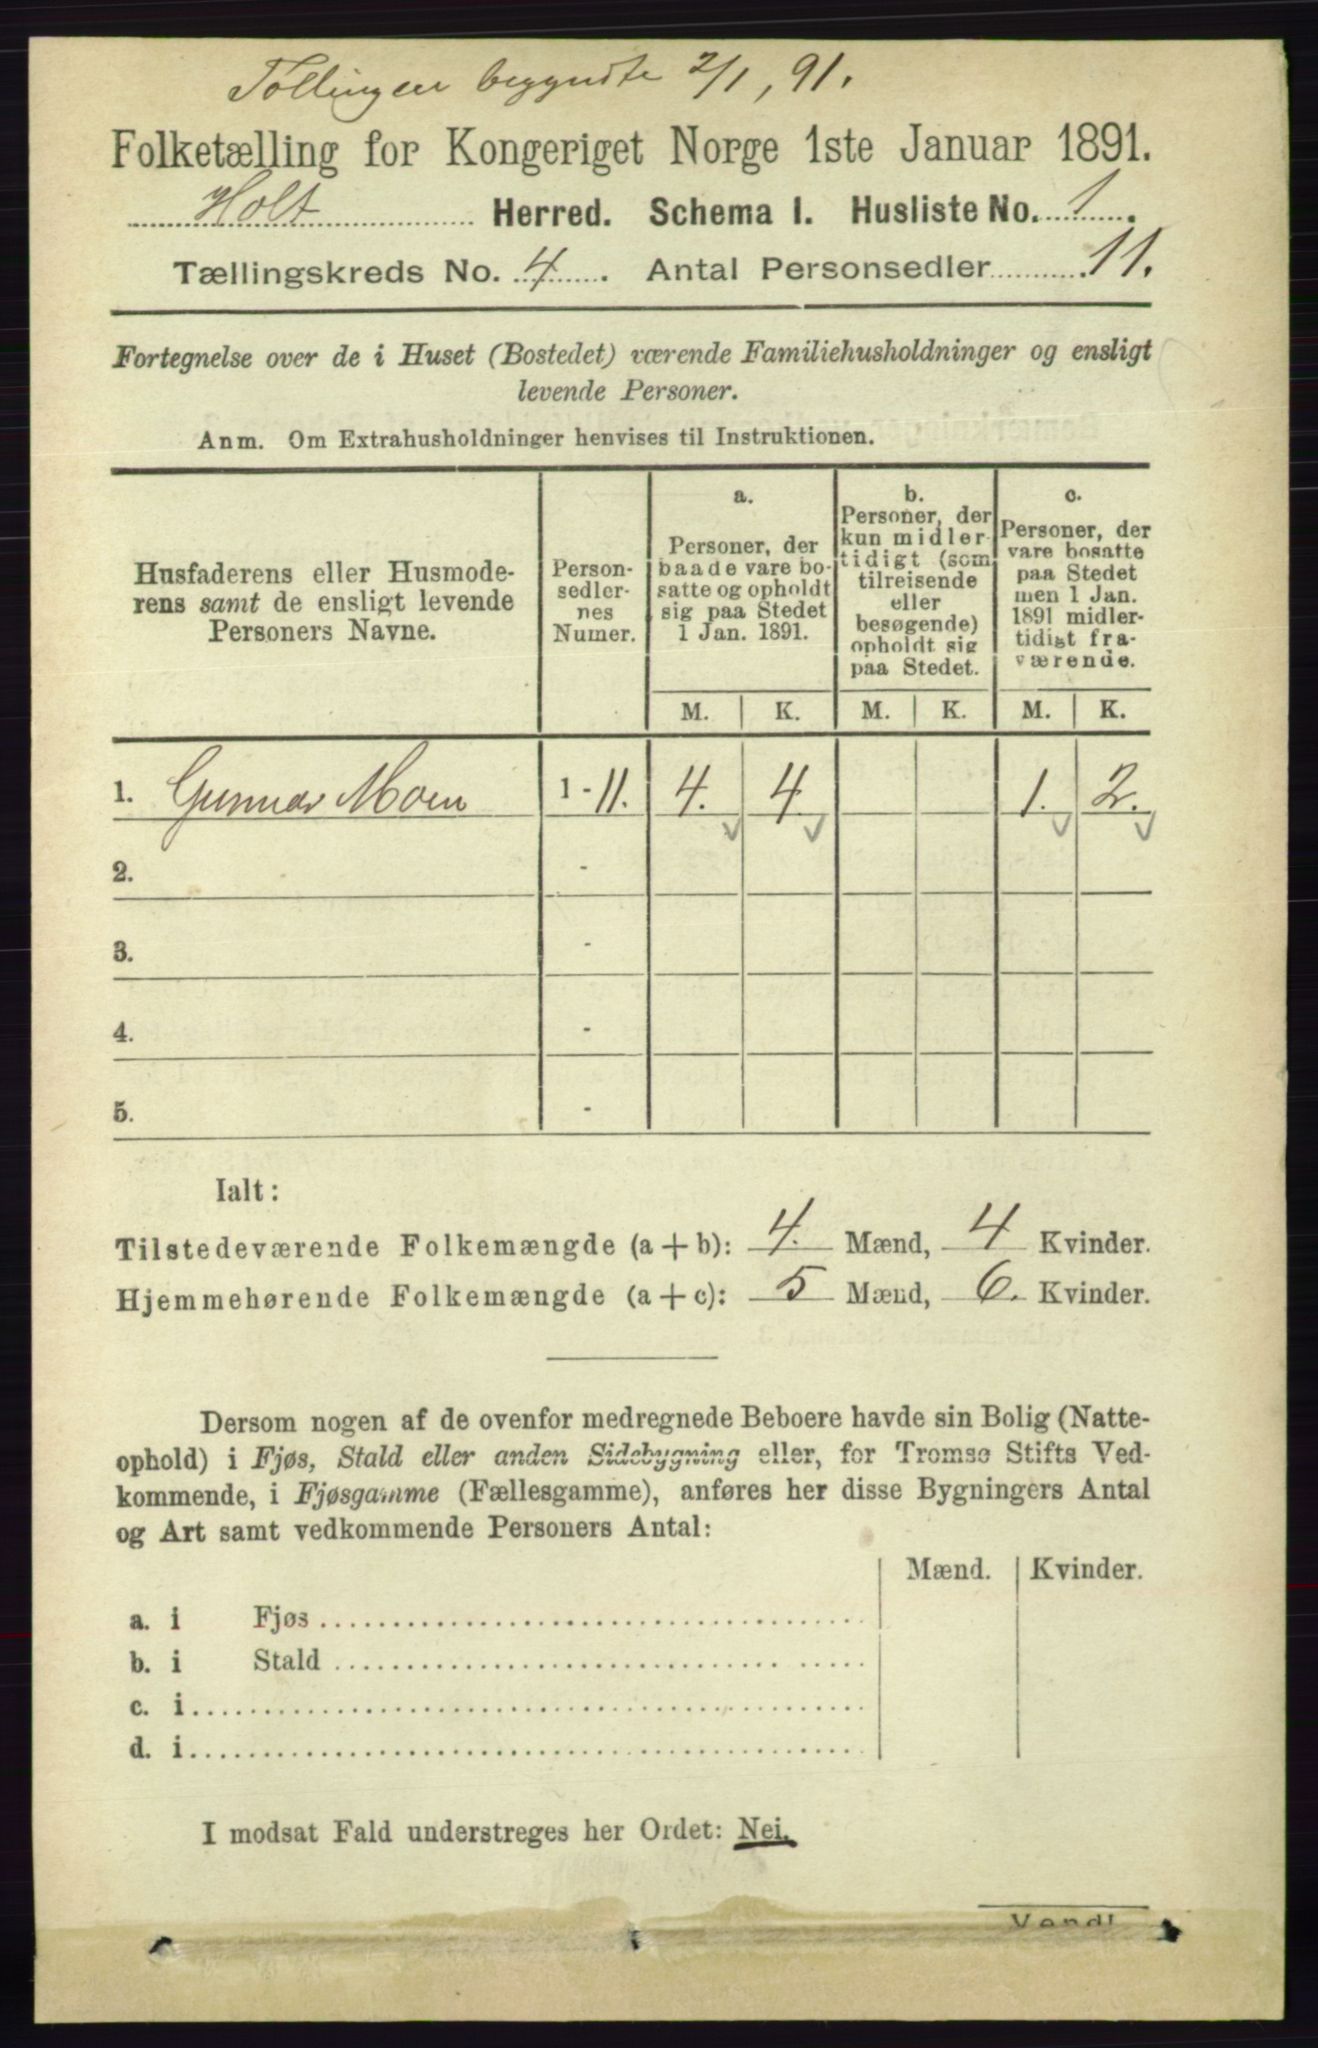 Tællingen begyndte 2/1, 91.
Folketælling for Kongeriget Norge 1ste Januar 1891.
Holt Herred. Schema I. Husliste No. 1.
Tællingskreds No. 4. Antal Personsedler 11.
Fortegnelse over de i Huset (Bostedet) værende Familiehusholdninger og ensligt
levende Personer.
Anm. Om Extrahusholdninger henvises til Instruktionen.
Husfaderens eller Husmode-
rens samt de ensligt levende
Personers Navne.
Person-
sedler-
nes
Numer.
a.
Personer, der
baade vare bo-
satte og opholdt
sig paa Stedet
1 Jan. 1891.
b.
Personer, der
kun midler-
tidigt (som
tilreisende
eller
besøgende)
opholdt sig
paa Stedet.
c.
Personer, der
vare bosatte
paa Stedet
men 1 Jan.
1891 midler-
tidigt fra-
værende.
M. K. M. K. M. K.
1. Gunnar Moen 1 - 11. 4. 4 1. 2.
2. -
3. -
4. -
5. -
Ialt:
Tilstedeværende Folkemængde (a + b): 4. Mænd, 4 Kvinder.
Hjemmehørende Folkemængde (a + c): 5 Mænd, 6. Kvinder.
Dersom nogen af de ovenfor medregnede Beboere havde sin Bolig (Natte-
ophold) i Fjøs, Stald eller anden Sidebygning eller, for Tromsø Stifts Ved-
kommende, i Fjøsgamme (Fællesgamme), anføres her disse Bygningers Antal
og Art samt vedkommende Personers Antal:
Mænd. Kvinder.
a. i Fjøs
b. i Stald
c. i
d. i
I modsat Fald understreges her Ordet: Nei.
Vend!